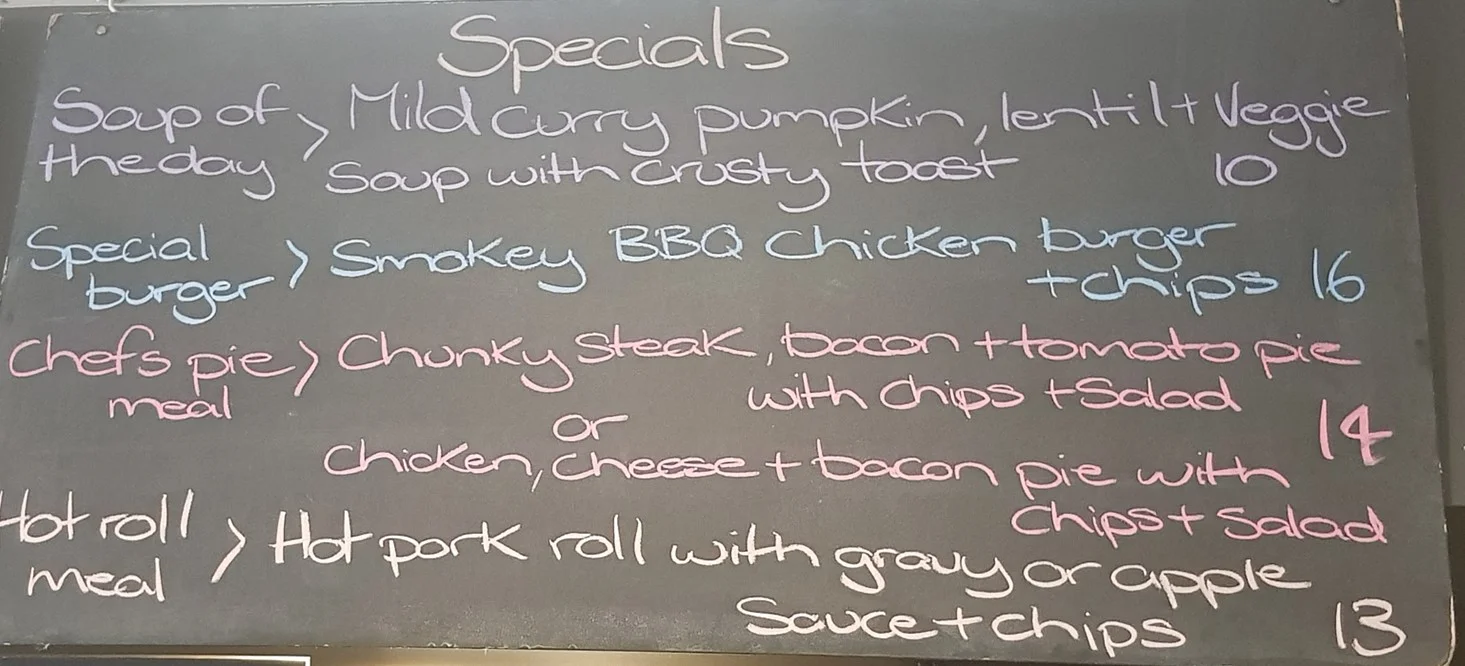 Specials
Soup of > Mild curry pumpkin, lentil + Veggie
the day Soup with crusty toast 10
Special > Smokey BBQ Chicken burger
burger + chips 16
Chefs pie > Chunky steak, bacon + tomato pie
meal with chips + Salad
or 14
Chicken, cheese + bacon pie with
Chips + Salad
Hot roll > Hot pork roll with gravy or apple
meal Sauce + chips 13